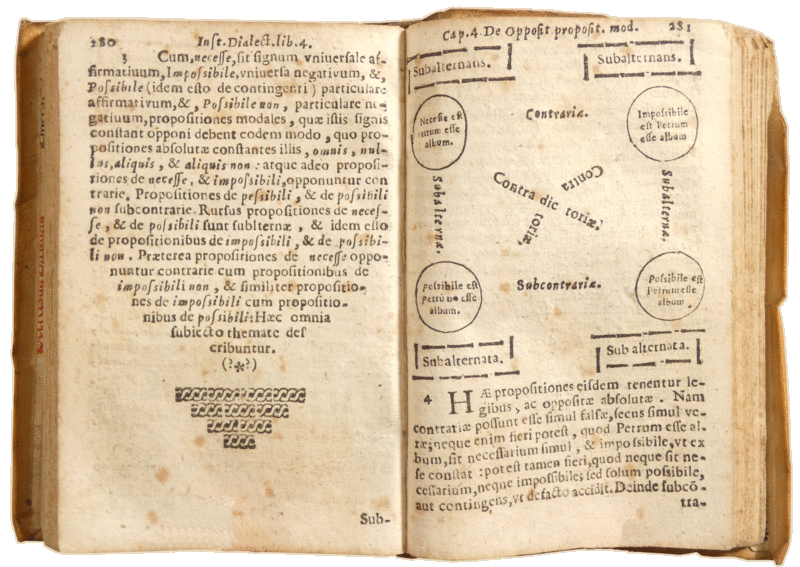 280 Inst.Dialect.lib.4.
3 Cum, necesse, sit signum vniuersale af-
firmatiuum, Impossibile, vniuersa negativum, &,
Possibile (idem esto de contingenti) particulare
affirmativum, &, Possibile non, particulare ne-
gatiuum, propositiones modales, quæ istis signis
constant opponi debent eodem modo, quo pro-
positiones absolutæ constantes illis, omnis, nul-
lus, aliquis, & aliquis non: atque adeo proposi-
tiones de necesse, & impossibili, opponuntur con
trarie, Propositiones de possibili, & de possibili
non subcontrarie. Rursus propositiones de neces-
se, & de possibili sunt sublternæ, & idem esto
de propositionibus de impossibili, & de possibi-
li non. Præterea propositiones de necesse oppo-
nuntur contrarie cum propositionibus de
impossibili non, & similiter propositio-
nes de impossibili cum propositio-
nibus de possibili: Hæc omnia
subiecto themate des
cribuntur.
(?*?)
Sub-
Cap.4. De Opposit. proposit. mod. 281
Subalternans.
Subalternans.
Necesse est
Petrum esse
album.
Contrariæ.
Impossibile
est Petrum
esse album
Subalternæ.
Contra dictoriæ.
Contra
toriæ,
Subalternæ.
possibile est
Petrū nō esse
album.
Subcontrariæ.
Possibile est
Petrum esse
album.
Subalternata.
Subalternata.
4 HÆ propositiones eisdem tenentur le-
gibus, ac oppositæ absolutæ. Nam
contrariæ possunt esse simul falsæ, secus simul ve-
ræ; neque enim fieri potest, quod Petrum esse al-
bum, sit necessarium simul, & impossibile, vt ex
se constat: potest tamen fieri, quod neque sit ne-
cessarium, neque impossibile; sed solum possibile,
aut contingens, vt defacto accidit. Deinde subcō-
tra-